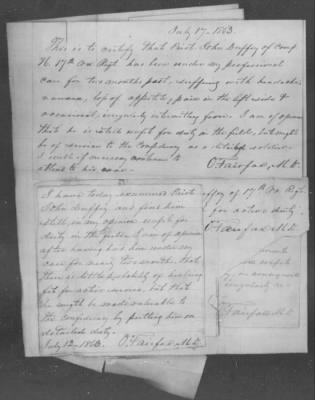 July 17 - 1863.
This is to certify that Privt John Duffey of Comp
H. 17th Va Regt has been under my professional
care for two months past, suffering with headache
nausea, loss of appetite, pain in the left side &
occasional, irregular intermitting fever. I am of opinion
that he is still unfit for duty in the field, but might
be of service to the Confdracy as a detailed soldier.
I will if necessary continue to
attend to his case. O. Fairfax, M.D.
I have today examined Privt
John Duffey and find him
still in my opinion unfit for
duty in the field. I am of opinion
after having had him under my
care for nearly two months, that
there is little probability of his being
fit for active service, but that
he might be made valuable to
the Confederacy by putting him on
detailed duty.
July 12 - 1863. O. Fairfax, M.D.
ffey of 17th Va Regt
for active duty.
O. Fairfax M.D.
unfit
Fairfax M.D.